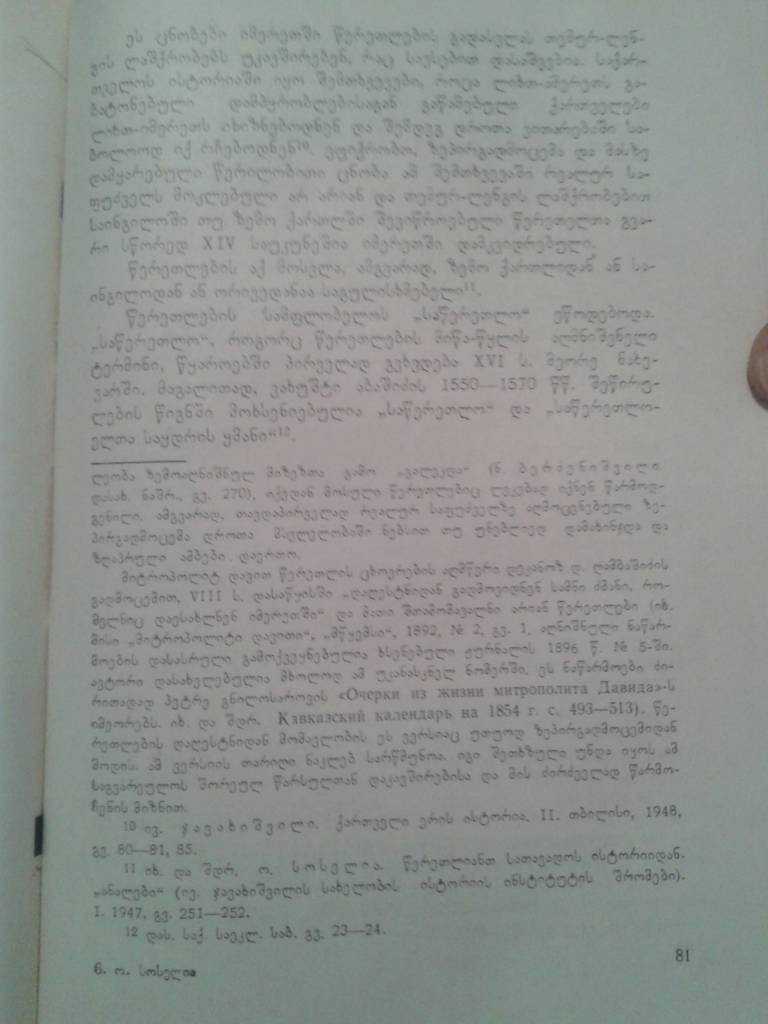 ეს ცნობები იმერეთში წერეთლების გადასვლას თემურ-ლენ-
გის ლაშქრობებს უკავშირებენ, რაც სავსებით დასაშვებია. საქარ-
თველოს ისტორიაში იყო შემთხვევები, როცა ლიხთ-ამერეთს გა-
ბატონებული დამპყრობლებისაგან გაწამებული ქართველები
ლიხთ-იმერეთს იხიზნებოდნენ და შემდეგ დროთა ვითარებაში სა-
ბოლოოდ იქ რჩებოდნენ¹⁰. ვფიქრობთ, ზეპირგადმოცემა და მასზე
დამყარებული წერილობითი ცნობა ამ შემთხვევაში რეალურ სა-
ფუძველს მოკლებული არ არიან და თემურ-ლენგის ლაშქრობებით
საინგილოში თუ ზემო ქართლში შევიწროებული წერეთელთა გვა-
რი სწორედ XIV საუკუნეშია იმერეთში დამკვიდრებული.
წერეთლების აქ მოსვლა, ამგვარად, ზემო ქართლიდან ან სა-
ინგილოდან ან ორივედანაა საგულისხმებელი¹¹.
წერეთლების სამფლობელოს „საწერეთლო“ ეწოდებოდა.
„საწერეთლო“, როგორც წერეთლების მიწა-წყლის აღმნიშვნელი
ტერმინი, წყაროებში პირველად გვხვდება XVI ს. მეორე ნახე-
ვარში. მაგალითად, ვახუშტი აბაშიძის 1550—1570 წწ. შეწირუ-
ლების წიგნში მოხსენიებულია „საწერეთლო“ და „საწერეთლო-
ელთა საყდრის ყმანი“¹².
ლეობა ზემოაღნიშნულ მიზეზთა გამო „გალეკდა“ (ნ. ბერძენიშვილი,
დასახ. ნაშრ., გვ. 270), იქედან მოსული წერეთლებიც ლეკებად იქნენ წარმოდ-
გენილი. ამგვარად, თავდაპირველად რეალურ საფუძველზე აღმოცენებული ზე-
პირგადმოცემა დროთა მსვლელობაში ნებსით თუ უნებლიედ დამახინჯდა და
ზღაპრული ამბები დაერთო.
მიტროპოლიტ დავით წერეთლის ცხოვრების აღმწერი დეკანოზ დ. ღამბაშიძის
გადმოცემით, VIII ს. დასაწყისში „დაღესტნიდან გადმოვიდნენ სამნი ძმანი, რო-
მელნიც დაესახლნენ იმერეთში“ და მათი შთამომავალნი არიან წერეთლები (იხ.
მისი „მიტროპოლიტი დავითი“, „მწყემსი“, 1892, № 2, გვ. 1, აღნიშნული ნაწარ-
მოების დასასრული გამოქვეყნებულია ხსენებული ჟურნალის 1896 წ. № 5-ში.
ავტორი დასახელებულია მხოლოდ ამ უკანასკნელ ნომერში. ეს ნაწარმოები ძი-
რითადად პეტრე გნილოსაროვის «Очерки из жизни митрополита Давида»-ს
იმეორებს. იხ. და შდრ. Кавказский календарь на 1854 г. с. 493—513). წე-
რეთლების დაღესტნიდან მომავლობის ეს ვერსიაც უთუოდ ზეპირგადმოცემიდან
მოდის. ამ ვერსიის თარიღი ნაკლებ სარწმუნოა. იგი შეთხზული უნდა იყოს ამ
საგვარეულოს შორეულ წარსულთან დაკავშირებისა და მის ძირძველად წარმო-
ჩენის მიზნით.
10 ივ. ჯავახიშვილი. ქართველი ერის ისტორია. II. თბილისი, 1948,
გვ. 80—81, 85.
11 იხ. და შდრ. ო. სოსელია. წერეთლიანთ სათავადოს ისტორიიდან.
„ანალები“ (ივ. ჯავახიშვილის სახელობის ისტორიის ინსტიტუტის შრომები).
I. 1947, გვ. 251—252.
12 დას. საქ. საეკლ. საბ. გვ. 23—24.
6. ო. სოსელია
81